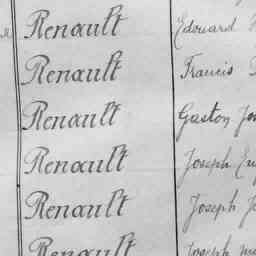 Renault Edouard
Renault Francis
Renault Gaston
Renault Joseph
Renault Joseph
Renault Joseph